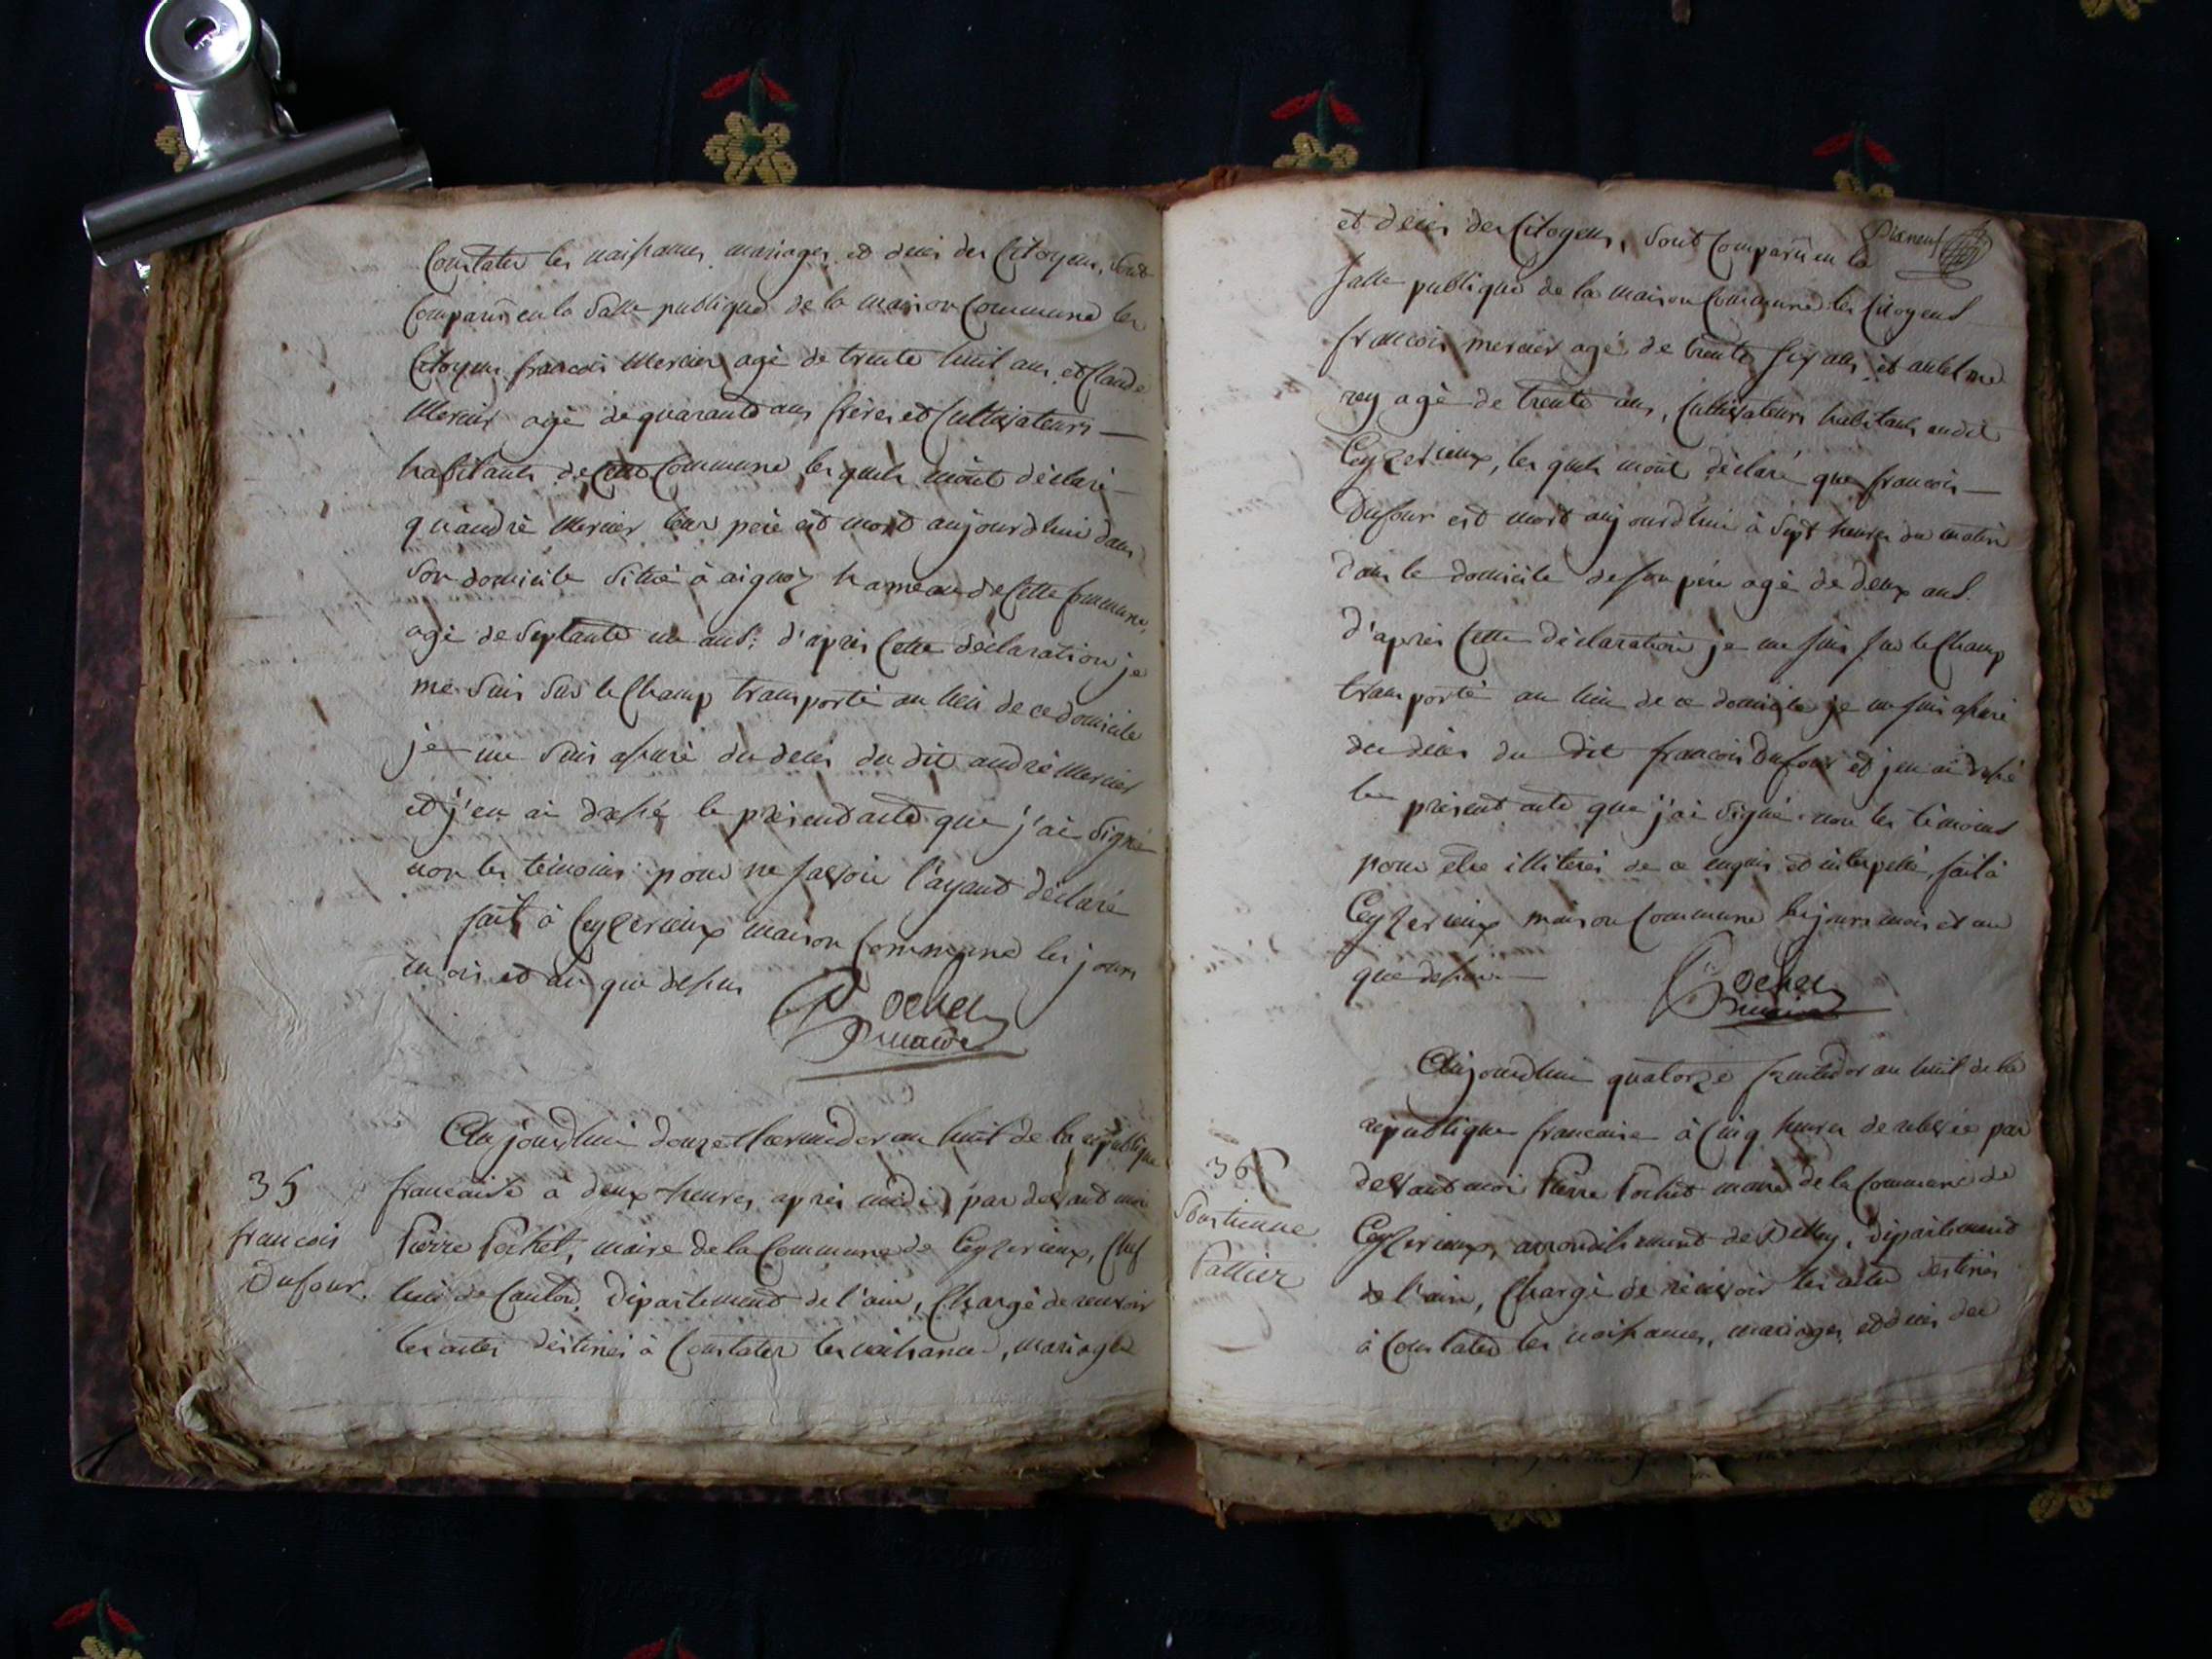 Constater les naissances, mariages, et decés des Citoyens, sont
Comparû en la Salle publique de la maison Commune les
Citoyens francois Mercier agé de trente huit ans, et Claude
Mercier agé de quarante ans frères et Cultivateurs —
habitants de Commune les quels m'ont déclaré —
qu'andré Mercier leur père est mort aujourdhui dans
Son domicile Situé à aignoz hameau de Cette Commune,
agé de Septante un ans: d'après Cette déclaration je
me Suis Sur le Champ transporté au lieu de ce domicile
je me Suis assuré du decés du dit andré Mercier
et j'en ai dressé le présent acte que j'ai Signé
non les témoins pour ne Savoir l'ayant déclaré
fait à Ceyzerieux maison Commune les jours
mois et an que dessus
Pochet
maire
Aujourdhui douze thermidor an huit de la république
35
francaise à deux heures après midi, par devant moi
francois
Pierre Pochet, maire de la Commune de Ceyzerieux, Chef
Dufour.
lieu de Canton, Département de l'ain, Chargé de recevoir
les actes destinés à Constater les naissances, mariages
et décés des Citoyens, Sont Comparû en la
salle publique de la maison Commune les Citoyens
francois mercier agé de trente six ans, et antelme
rey agé de trente ans, Cultivateurs habitants audit
Ceyzerieux, les quels m'ont déclaré que francois —
Dufour est mort aujourdhui à Sept heures du matin
dans le domicile de son père agé de deux ans.
d'après Cette déclaration je me suis sur le Champ
transporté au lieu de ce domicile je me suis assuré
du décés du dit francois Dufour et j'en ai dressé
le présent acte que j'ai Signé non les témoins
pour être illiterés de ce enquis et interpellé, fait à
Ceyzerieux maison Commune les jours mois et an
que dessus —
Pochet
maire
Aujourdhui quatorze an huit de la
republique francaise à Cinq heures de relevée par
36
devant moi Pierre Pochet maire de la Commune de
Ceyzerieux, arrondissement de Belley, Département
Pallier
de l'ain, Chargé de recevoir les actes destinés
à Constater les naissances, mariages, et décés des